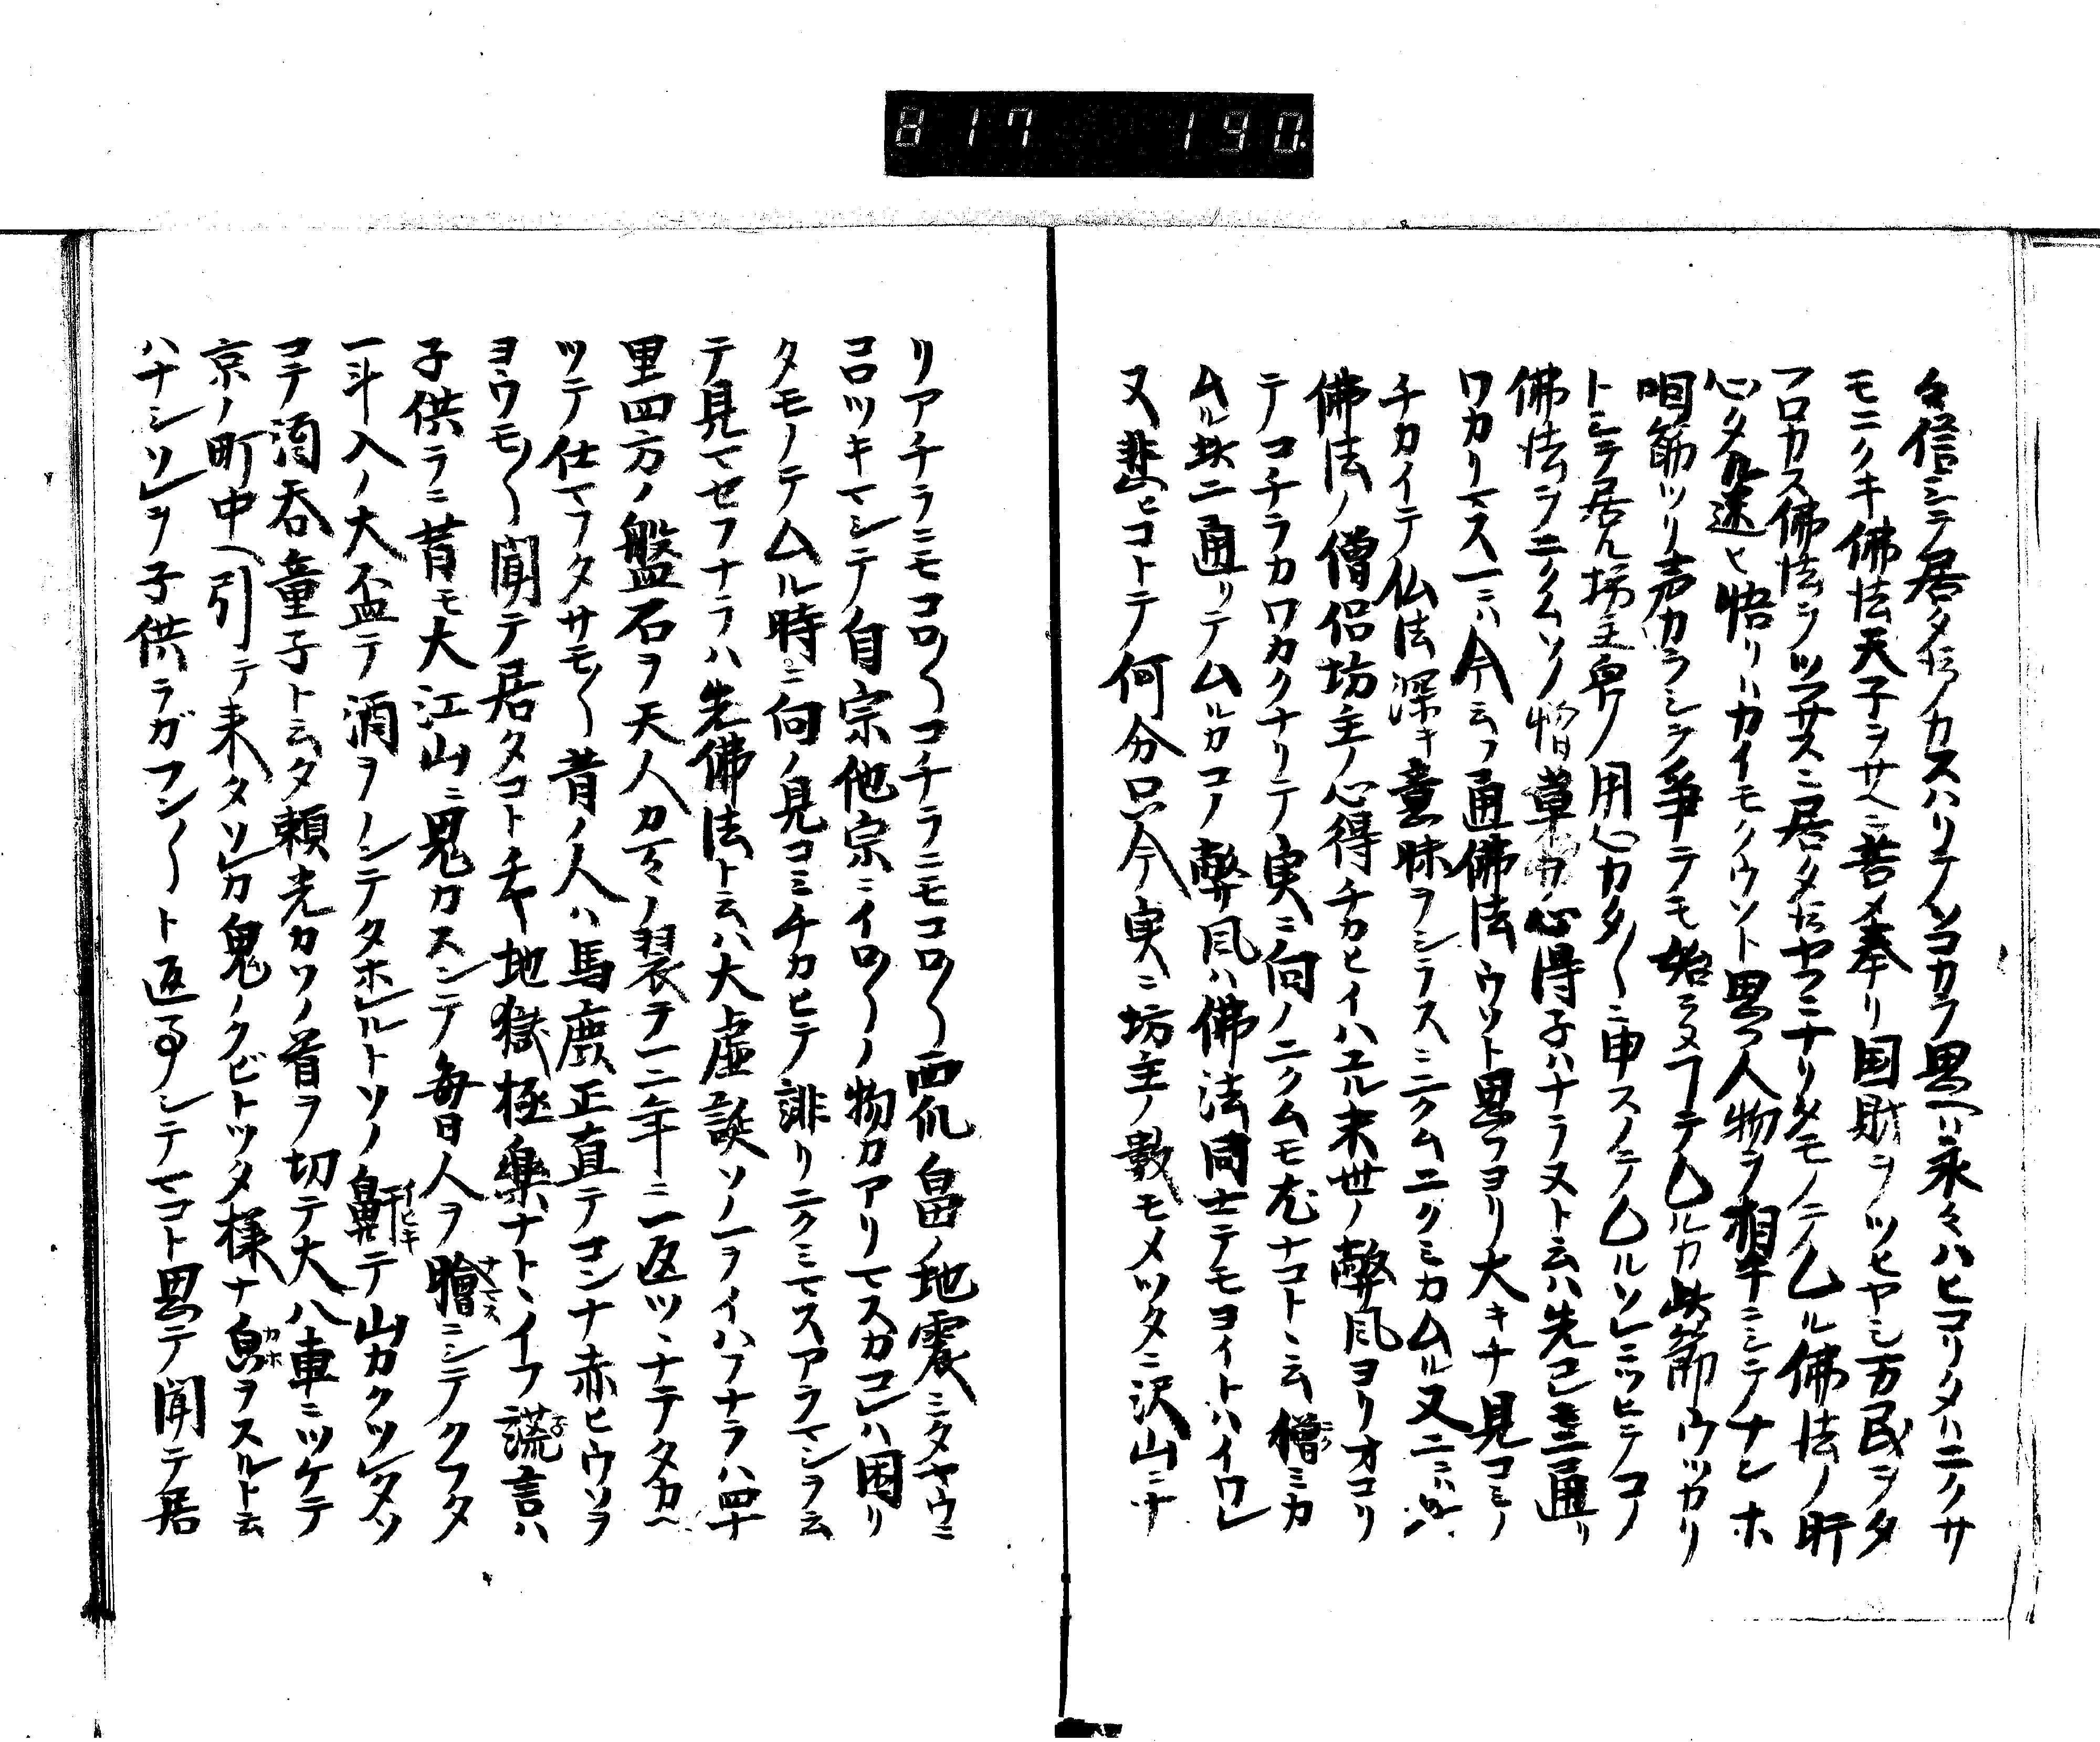 817 190.
々信シテ居タ伝ノカスハリテソコカラ思ヘハ永々ハヒコリタハニノサ
モニクキ佛法天子ヲサヘニ苦メ奉リ国財ヲツヒヤシ万民ヲタ
フロカス佛法ヲツフサスニ居タタヤフニナリタモノテムル佛法ノ肝
心タル迷ヒ悟リハカイモクウソト思フ人物ヲ相手ニシテナンホ
咽筋ツリ声カラシテ争テモ始ラヌヿテムルカ此節ウツカリ
トシテ居ル坊主衆ノ用心カタ〳〵ニ申スノテムルソレニツヒテコノ
佛法ヲニクムソノ憎シ草カ心得子ハナラヌト云ハ先已モ二通リ
ワカリマス一ニハ今云フ通佛法ウソト思フヨリ大キナ見コミノ
チカイテ仏法深キ意味ヲシラスニニクムニクミカムル又二ニハ
佛法ノ僧侶坊主ノ心得チカヒイハユル末世ノ弊風ヨリオコリ
テコチラカワカクナリテ実ニ向ノニクムモ尤ナコトニ云憎ミカ
ムル此二通リテムルカコノ弊風ハ佛法同士テモヨイトハイワレ
ヌ悲ヒコトテ何分只今実ニ坊主ノ数モメツタニ沢山ニナ
リアチラニモコロ〳〵コチラニモコロ〳〵西瓜畠ノ地震ミタヤウニ
コロツキマシテ自宗他宗ニイロ〳〵ノ物カアリマスカコレハ困リ
タモノテムル時ニ向ノ見コミチカヒテ誹リニクミマスアラマシヲ云
テ見マセフナラハ先佛法ト云ハ大虚談ソノ一ヲイハフナラハ四十
里四方ノ盤石ヲ天人カ天ノ羽衣テ一二年ニ一返ツヽナテタカヘ
ツテ仕マフタサモ〳〵昔ノ人ハ馬鹿正直テコンナ赤ヒウソヲ
ヨウモ〳〵聞テ居タコトチヤ地獄極樂ナトヽイフ謊言ハ
子供ラニ昔モ大江山ニ鬼カスンテ毎日人ヲ膾ニシテクフタ
一斗入ノ大盃テ酒ヲノンテタホレルトソノ鼾テ山カクツレタソ
コテ酒呑童子ト云タ頼光カソノ首ヲ切テ大八車ニツケテ
京ノ町中ヘ引テ来タソレカ鬼ノクビトツタ様ナ皃ヲスルト云
ハナシソレヲ子供ラガフン〳〵ト返事シテマコト思テ聞テ居